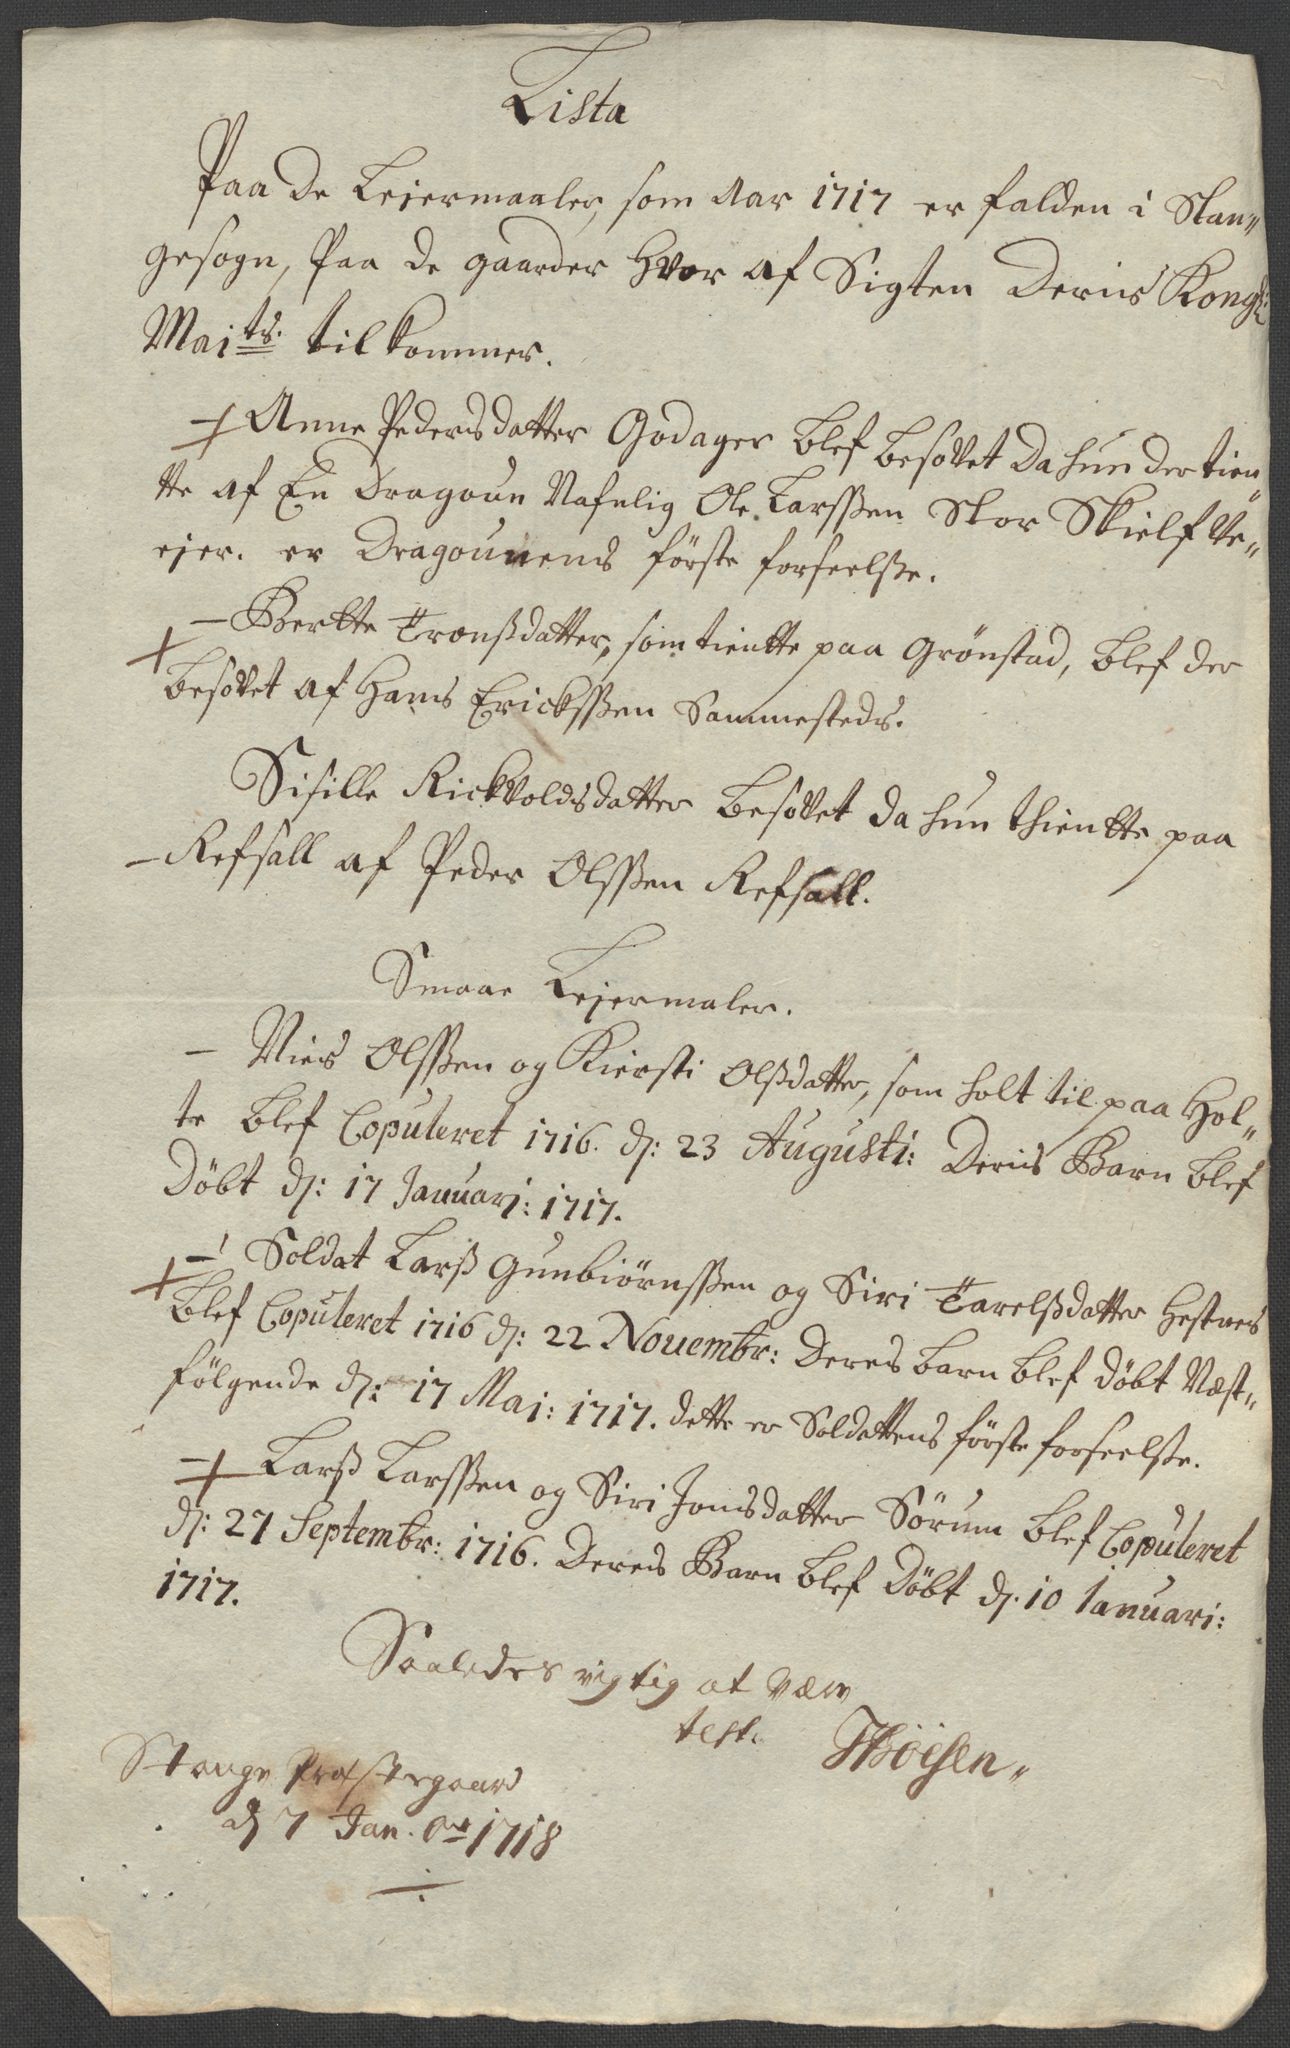 Lista
Paa de Leiermaaler, som Aar 1717 er falden i Stan„
gesogn, Paa de gaarder hvor af Sigten Deris Kongl:
Maj:ts: tilkommer.
Anne Pedersdatter Godager blef besovet da hun der tien„
tte af En Dragoun Nafnlig Ole Larsßen Stor Skielf Ve„
ejer. er Dragounens förste forseelße.
Bertte Tronßdatter, som tientte paa Grönstad, blef der
besovet af Hans Ericksßen Sammesteds.
Sisille Rickvoldsdatter besovet da hun thientte paa
Refsall af Peder Olsßen Refsall.
Smaae Leiermaler.
Niels Olsßen og Kiersti Olßdatter, som holt til paa Hol„
te blef Copuleret 1716. d: 23 Augusti: Deris Barn blef
Döbt d: 17 Januarj: 1717.
Soldat Larß Gunbiörnsßen og Siri Tarelßdatter Hestnes
blef Copuleret 1716 d: 22 Nouembr: Deres barn blef döbt Næst„
fölgende d: 17 Maj: 1717. dette er Soldattens förste forseelße.
Larß Larsßen og Siri Jonsdatter Sörum blef Copuleret
d: 27 Septembr: 1716. Deres Barn blef Döbt d. 10 Ianuari:
1717.
Saaledes rigtig at være
test.
Stange Præstegaard
d 7 Jan. 1718